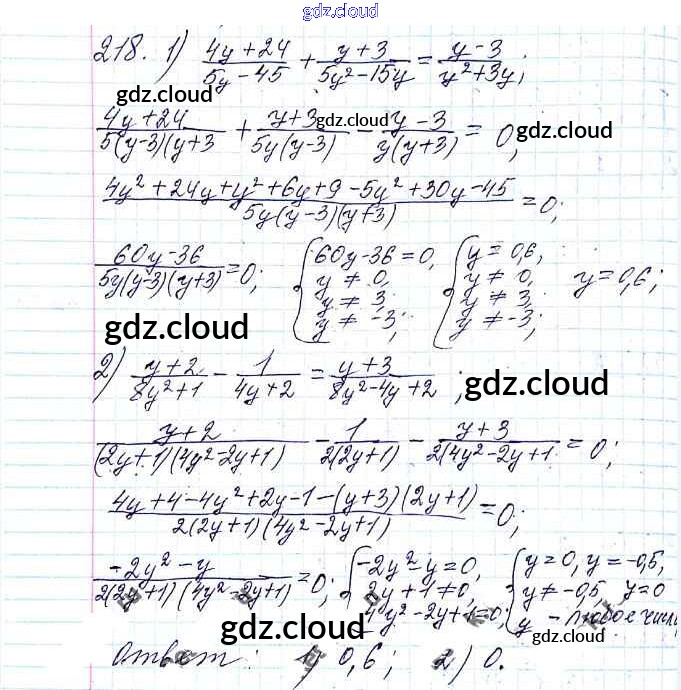 gdz.cloud
218. 1) (4y+24)/(5y-45) + (y+3)/(5y²-15y) = (y-3)/(y²+3y);
gdz.cloud
(4y+24)/(5(y-3)(y+3) + (y+3)/(5y(y-3)) - (y-3)/(y(y+3)) = 0;
gdz.cloud gdz.cloud
(4y²+24y+y²+6y+9-5y²+30y-45)/(5y(y-3)(y+3)) = 0;
(60y-36)/(5y(y-3)(y+3)) = 0; { 60y-36=0, y≠0, y≠3, y≠-3; { y=0,6, y≠0, y≠3, y≠-3; y=0,6;
gdz.cloud gdz.cloud
2) (y+2)/(8y²+1) - 1/(4y+2) = (y+3)/(8y²-4y+2);
gdz.cloud
(y+2)/((2y+1)(4y²-2y+1)) - 1/(2(2y+1)) - (y+3)/(2(4y²-2y+1) = 0;
(4y+4-4y²+2y-1-(y+3)(2y+1))/(2(2y+1)(4y²-2y+1)) = 0;
gdz.cloud
(-2y²-y)/(2(2y+1)(4y²-2y+1)) = 0; { -2y²-y=0, 2y+1≠0, 4y²-2y+1=0; { y=0, y=-0,5, y≠-0,5, y=0 y - любое число
gdz.cloud gdz.cloud
Ответ: 1) 0,6; 2) 0.